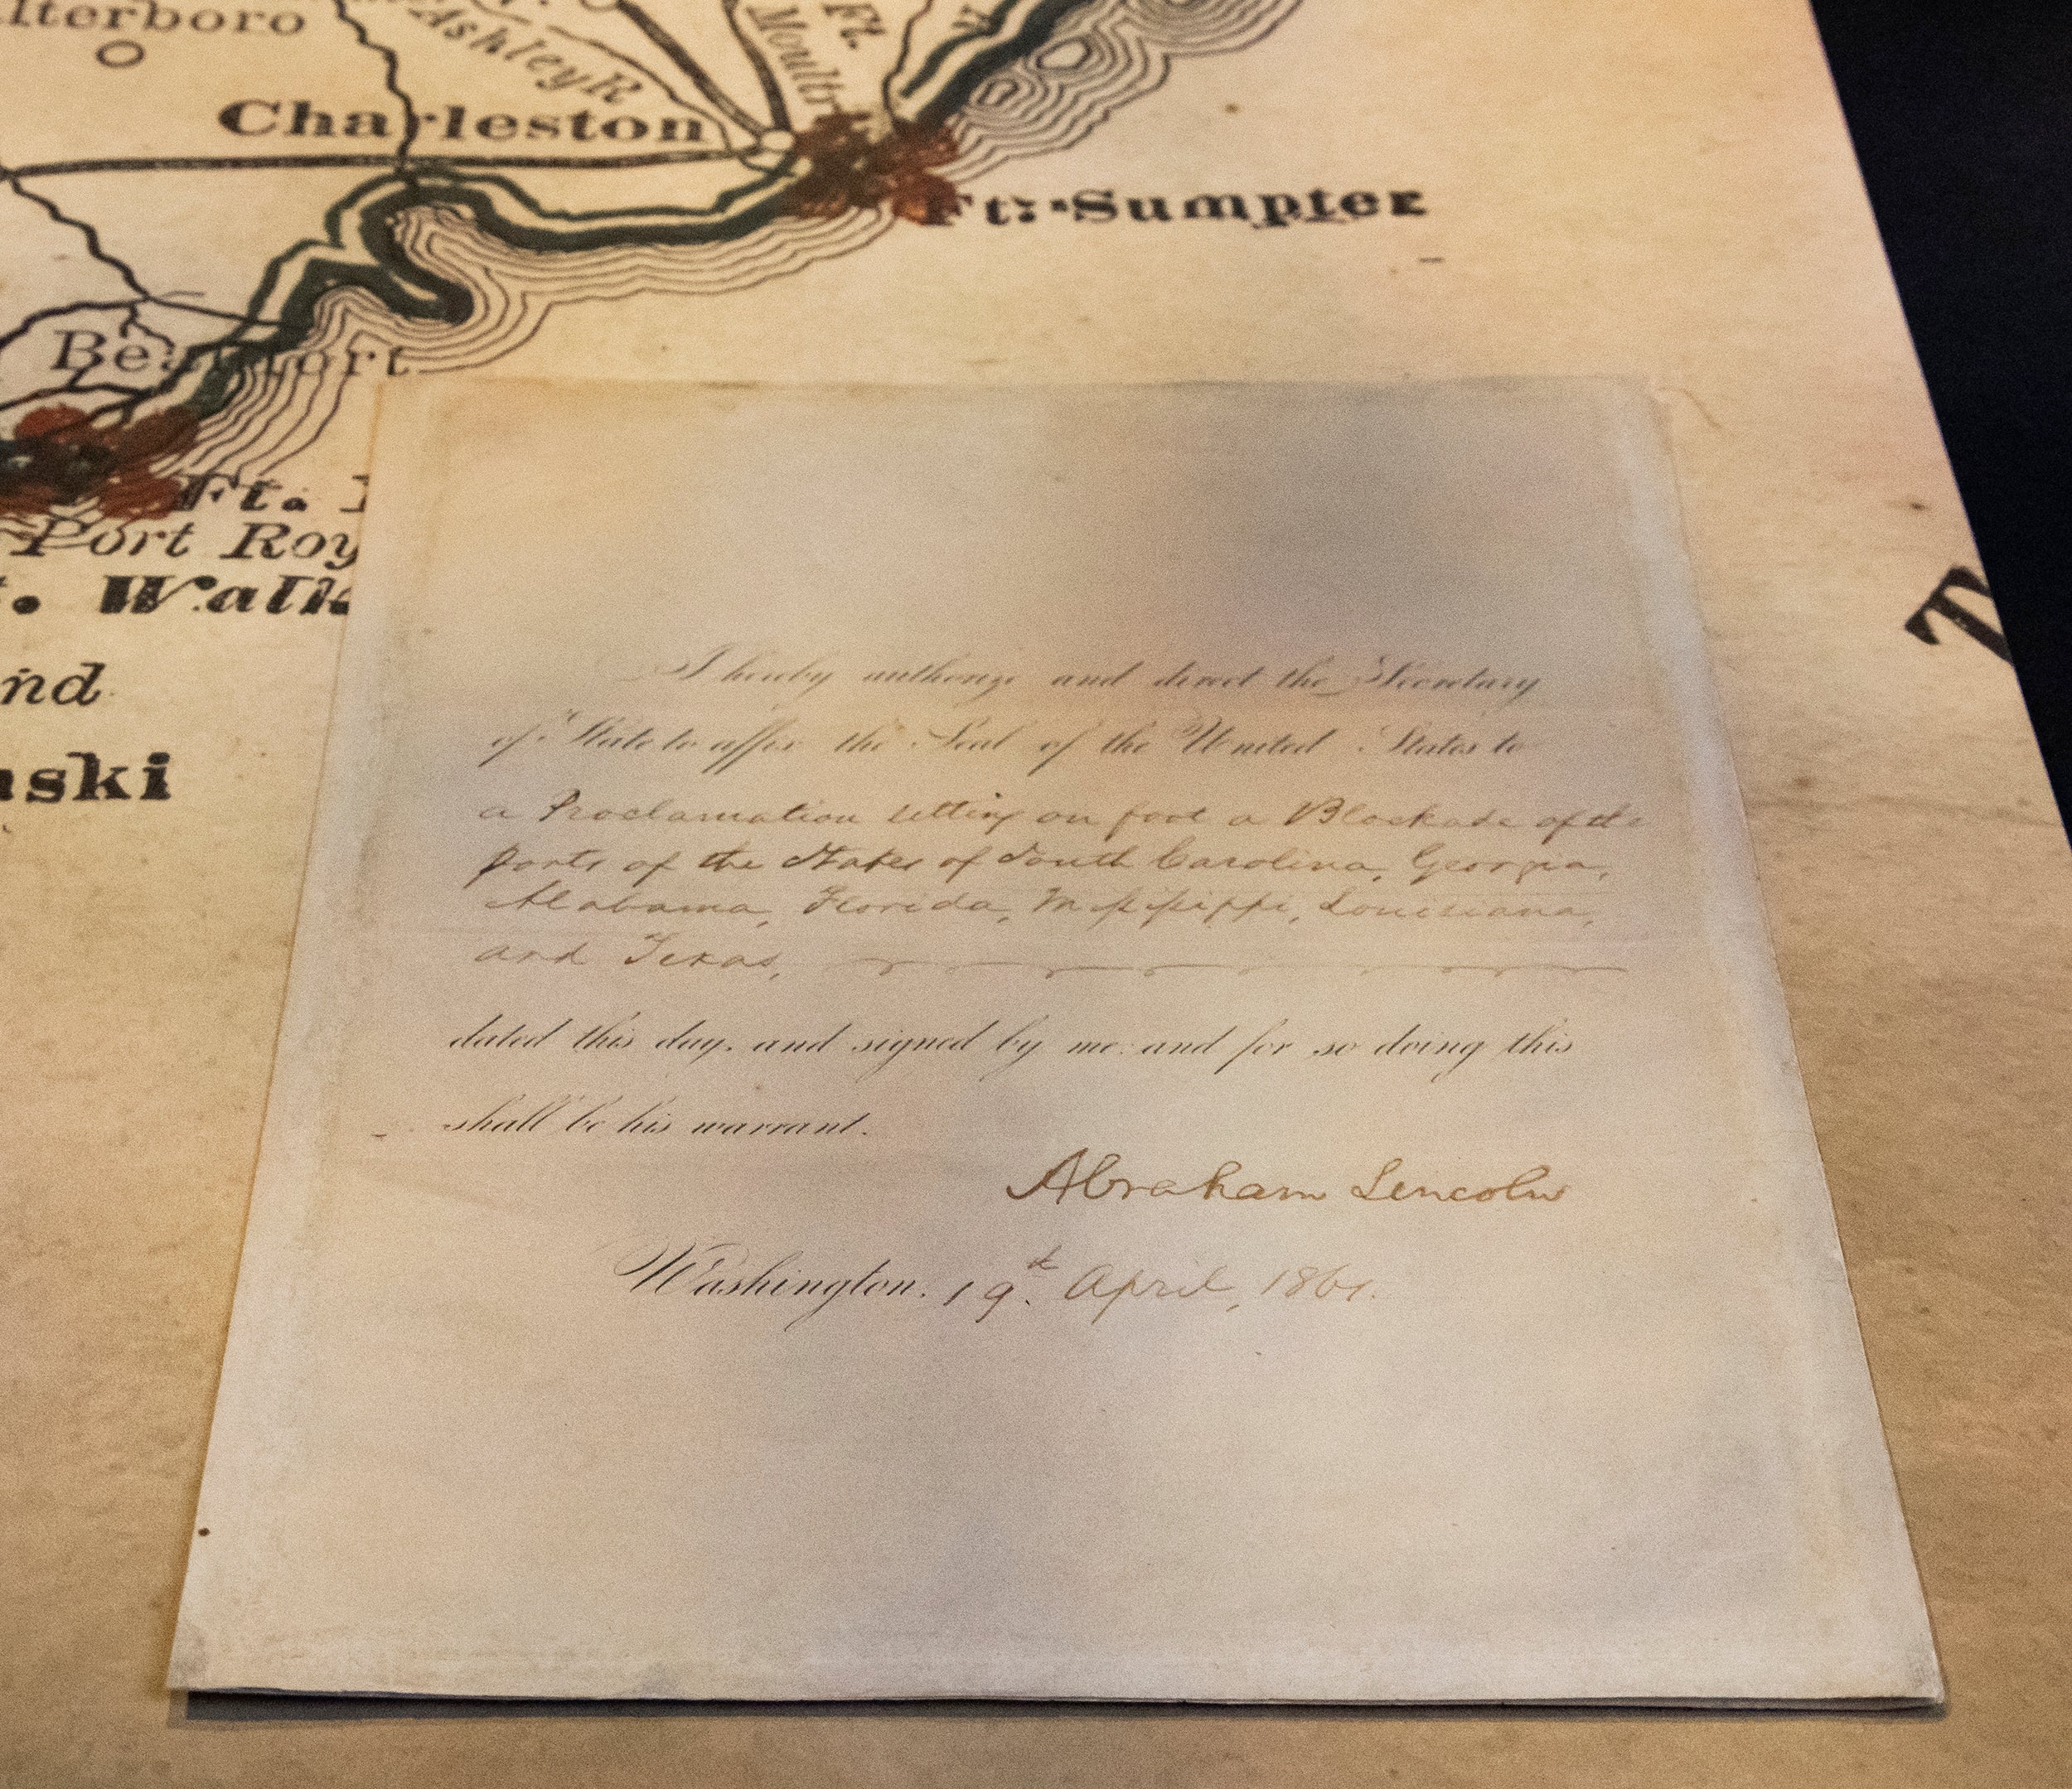 Ashley R
Ft.
Moultr
lterboro
Charleston
Ft. Sumpter
Beaufort
Ft.
Port Roy
t. Walk
nd
aski
T
I hereby authorize and direct the Secretary
of State to affix the Seal of the United States to
a Proclamation setting on foot a Blockade of the
ports of the States of South Carolina, Georgia,
Alabama, Florida, Mississippi, Louisiana,
and Texas,
dated this day, and signed by me: and for so doing this
shall be his warrant.
Abraham Lincoln
Washington, 19th April, 1861.